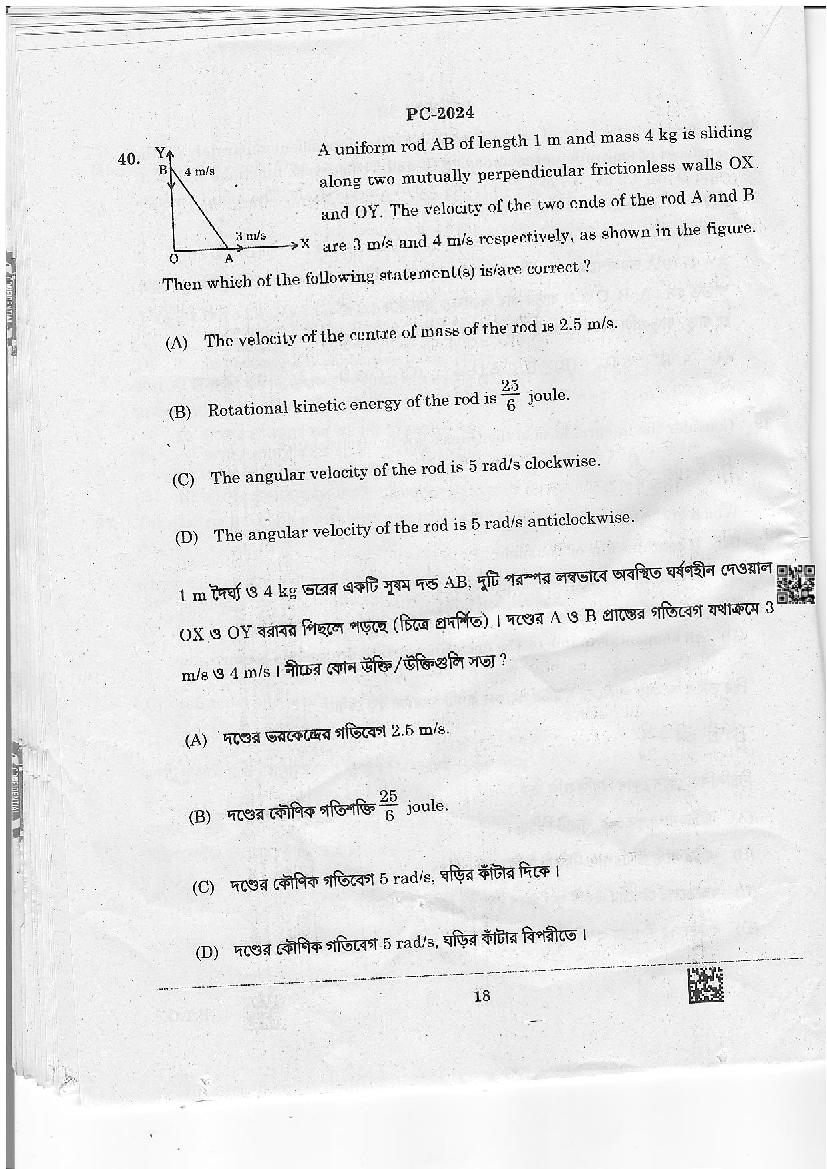 PC-2024
40.
Y
B 4 m/s
3 m/s
X
O A
A uniform rod AB of length 1 m and mass 4 kg is sliding
along two mutually perpendicular frictionless walls OX
and OY. The velocity of the two ends of the rod A and B
are 3 m/s and 4 m/s respectively, as shown in the figure.
Then which of the following statement(s) is/are correct ?
(A) The velocity of the centre of mass of the rod is 2.5 m/s.
(B) Rotational kinetic energy of the rod is 25/6 joule.
(C) The angular velocity of the rod is 5 rad/s clockwise.
(D) The angular velocity of the rod is 5 rad/s anticlockwise.
1 m দৈর্ঘ্য ও 4 kg ভরের একটি সুষম দন্ড AB, দুটি পরস্পর লম্বভাবে অবস্থিত ঘর্ষণহীন দেওয়াল
OX ও OY বরাবর পিছলে পড়ছে (চিত্রে প্রদর্শিত) । দণ্ডের A ও B প্রান্তের গতিবেগ যথাক্রমে 3
m/s ও 4 m/s । নীচের কোন উক্তি/উক্তিগুলি সত্য ?
(A) দণ্ডের ভরকেন্দ্রের গতিবেগ 2.5 m/s.
(B) দণ্ডের কৌণিক গতিশক্তি 25/6 joule.
(C) দণ্ডের কৌণিক গতিবেগ 5 rad/s, ঘড়ির কাঁটার দিকে ।
(D) দণ্ডের কৌণিক গতিবেগ 5 rad/s, ঘড়ির কাঁটার বিপরীতে ।
18